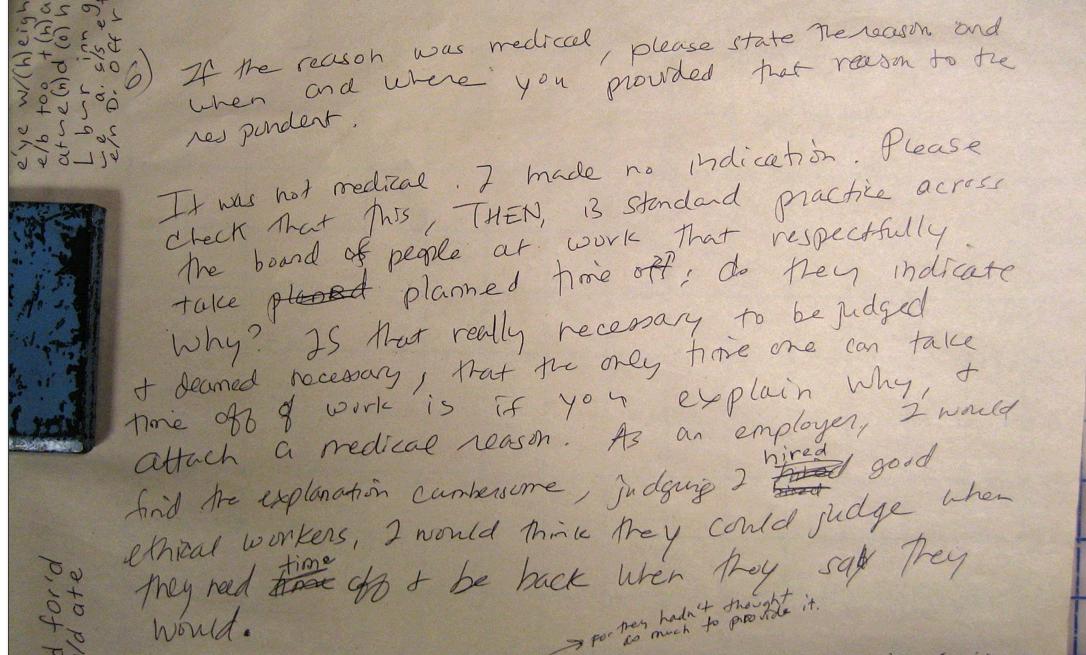 6) If the reason was medical, please state the reason and
when and where you provided that reason to the
respondent.
It was not medical. I made no indication. Please
check that this, THEN, is standard practice across
the board of people at work that respectfully
take planned planned time off; do they indicate
why? Is that really necessary to be judged
+ deamed necessary, that the only time one can take
time off of work is if you explain why, +
attach a medical reason. As an employer, I would
find the explanation cumbersome, judging I hired good
ethical workers, I would think they could judge when
they need time off + be back when they say they
would.
→ for they hadn't thought
so much to provide it.
e'ye w/(h)eigh
e/b too t(h)a
ature(n)d (o)h
d for'd
/d ate